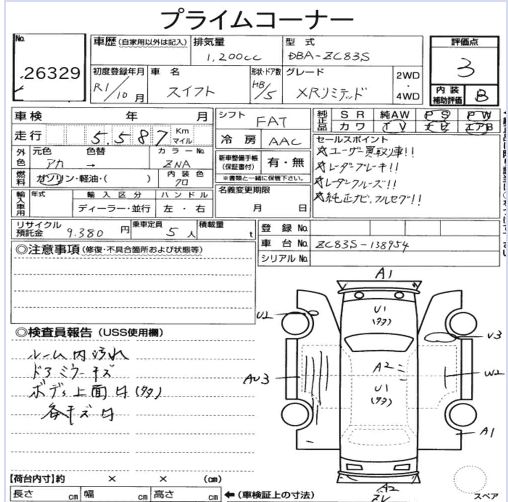 プライムコーナー
No. 26329
車歴 (自家用以外は記入) 排気量 1,200cc 型式 DBA-ZC83S
評価点 3
初度登録年月 R1/10月 車名 スイフト 形状・ドア数 HB/5 グレード XRリミテッド 2WD・4WD
内装補助評価 B
車検 年 月
走行 5,587 Km マイル
シフト FAT
冷房 AAC
純正品 SR 純AW PS PW
カワ TV ナビ エアB
セールスポイント
☆ユーザー買取り車!!
☆レーダーブレーキ!!
☆レーダークルーズ!!
☆純正ナビ、フルセグ!!
外色 元色 アカ → 色替 カラーNo. ZNA
燃料 ガソリン・軽油・( ) 内装色 クロ
新車整備手帳(保証書付) 有・無
※書類と一緒に保管下さい。
輸入車用 年式 輸入区分 ハンドル
ディーラー・並行 左・右
名義変更期限
月 日
リサイクル預託金 9.380 円 乗車定員 5人 積載量 t
登録No.
車台No. ZC83S-138954
シリアルNo.
◎注意事項 (修復・不具合箇所および状態等)
◎検査員報告 (USS使用欄)
ルーム内汚れ
ドアミラーキズ
ボディ上面 (多)
各キズ
A1
U1
(多)
U2
U3
A2
U1
(多)
AU3
W2
A1
A2
【荷台内寸】約 × × (cm)
長さ cm 幅 cm 高さ cm ←(車検証上の寸法)
スペア